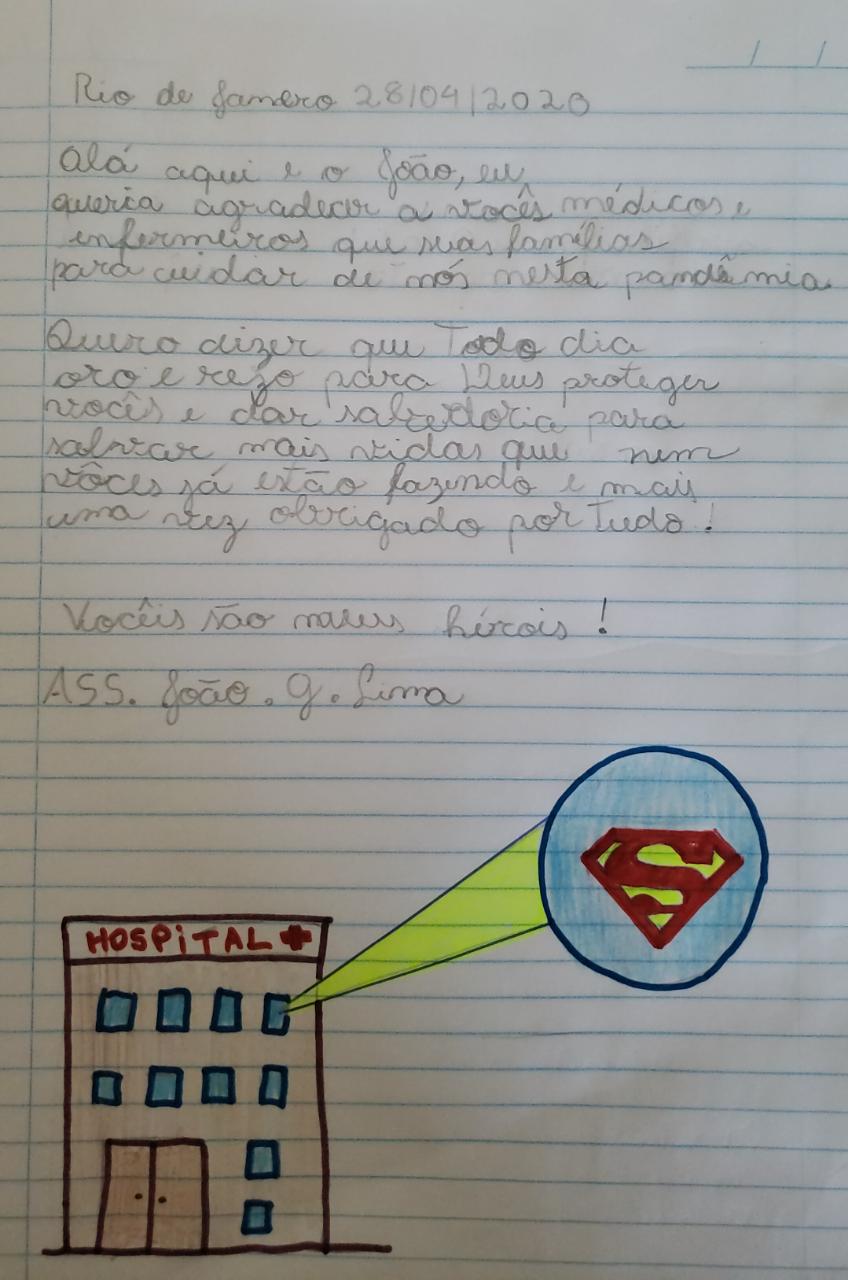 Rio de Janero 28/04/2020
Olá aqui e o João, eu
queria agradecer a vocês médicos e
enfermeiros que suas famílias
para cuidar de nós nesta pandêmia
Quero dizer que Todo dia
oro e rezo para Deus proteger
vocês e dar sabedoria para
salvar mais vidas que nem
vôces já estão fazendo e mais
uma vez obrigado por tudo!
Vocêis são meus hérois!
ASS. João. G. Lima
HOSPiTAL
S